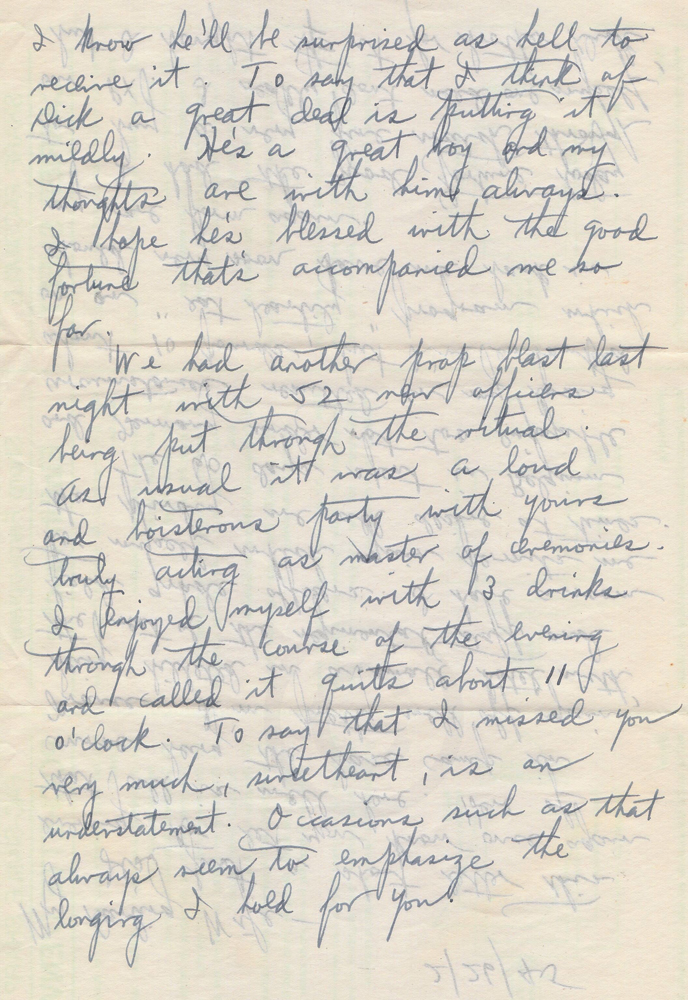 I know he'll be surprised as hell to
receive it. To say that I think of
Dick a great deal is putting it
mildly. He's a great boy and my
thoughts are with him always.
I hope he's blessed with the good
fortune that's accompanied me so
far.
We had another prop blast last
night with 52 new officers
being put through the ritual.
As usual it was a loud
and boisterous party with yours
truly acting as master of ceremonies.
I enjoyed myself with 3 drinks
through the course of the evening
and called it quits about 11
o'clock. To say that I missed you
very much, sweetheart, is an
understatement. Occasions such as that
always seem to emphasize the
longing I hold for you.
2/26/45